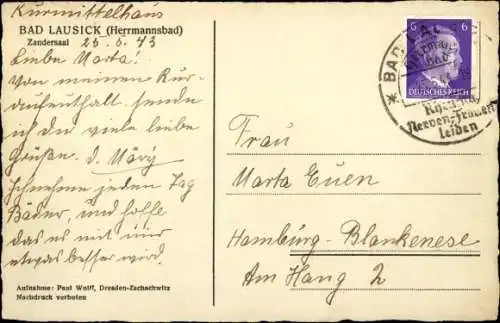 Kurmittelhaus
BAD LAUSICK (Herrmannsbad)
Zandersaal 25.6.43
Liebe Marta!
Von meinem Kur-
aufenthalt sende
ich dir viele liebe
Grüße. d. Mary
Ich nehme jeden Tag
Bäder, und hoffe
das es mit mir
etwas besser wird.
Aufnahme: Paul Wolff, Dresden-Zschachwitz
Nachdruck verboten
6 6
DEUTSCHES REICH
BAD
Rheuma
Nerven-Frauen
leiden
Frau
Marta Euen
Hamburg-Blankenese
Am Hang 2